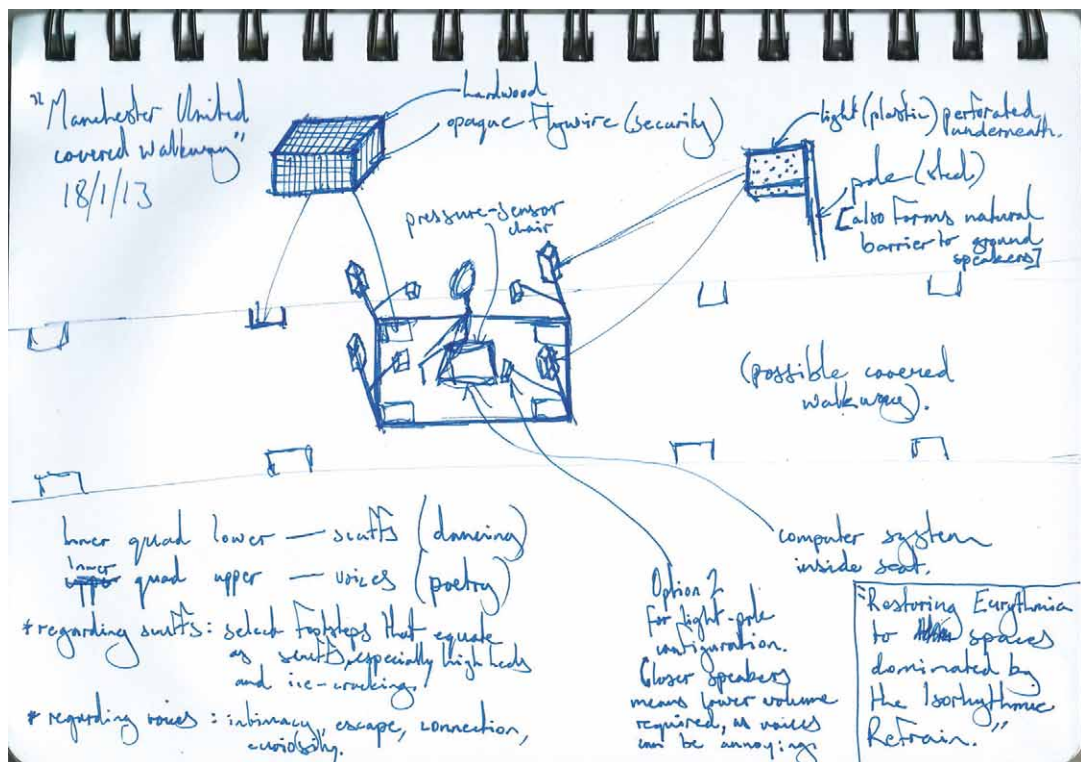 "Manchester United
covered walkway"
18/1/13
hardwood
opaque flywire (security)
light (plastic) perforated
underneath.
pole (steel)
[also forms natural
barrier to ground
speakers]
pressure-sensor
chair
(possible covered
walkway).
Inner quad lower — scuffs (dancing)
Inner quad upper — voices (poetry)
* regarding scuffs: select footsteps that equate
as scuffs, especially high heels
and ice-cracking.
* regarding voices: intimacy, escape, connection,
curiosity.
Option 2
for light-pole
configuration.
Closer speakers
means lower volume
required, as voices
can be annoying
computer system
inside seat.
"Restoring Eurythmia
to spaces
dominated by
the Isorhythmic
Refrain."